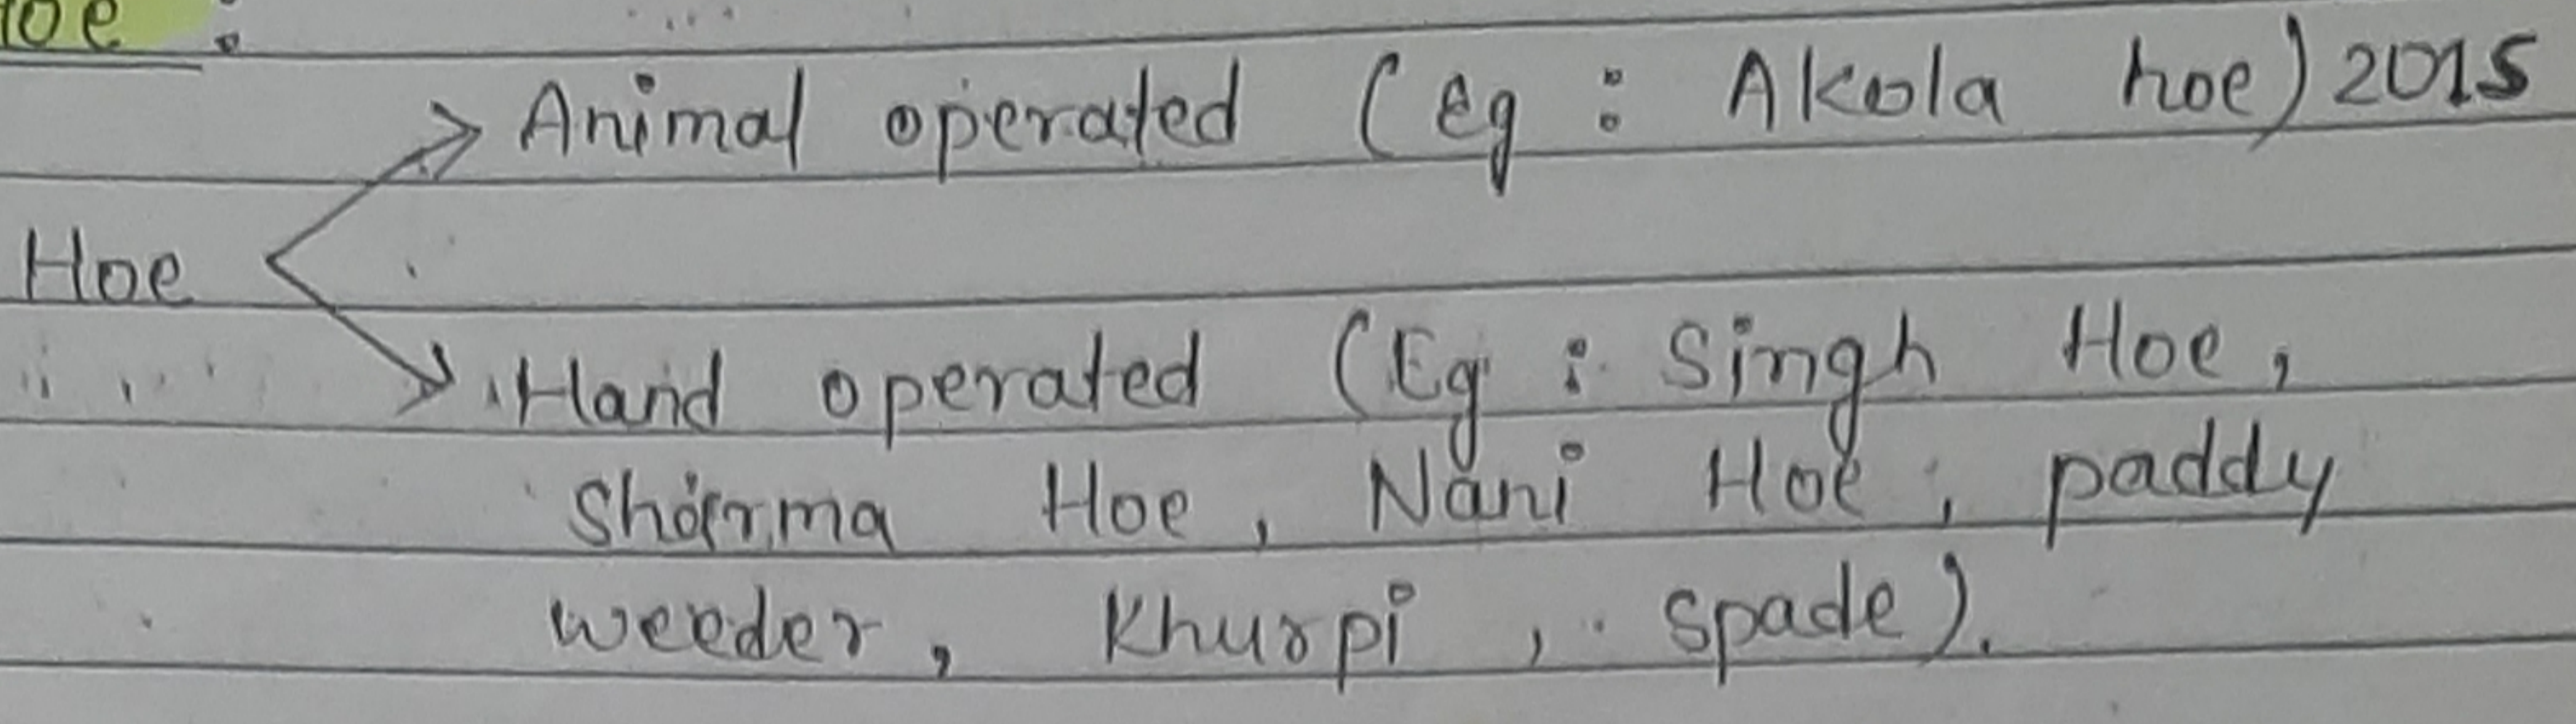 Hoe :
Animal operated (Eg : Akola hoe) 2015
Hoe
Hand operated (Eg : Singh Hoe,
Sharma Hoe, Nani Hoe, paddy
weeder, Khurpi, Spade).